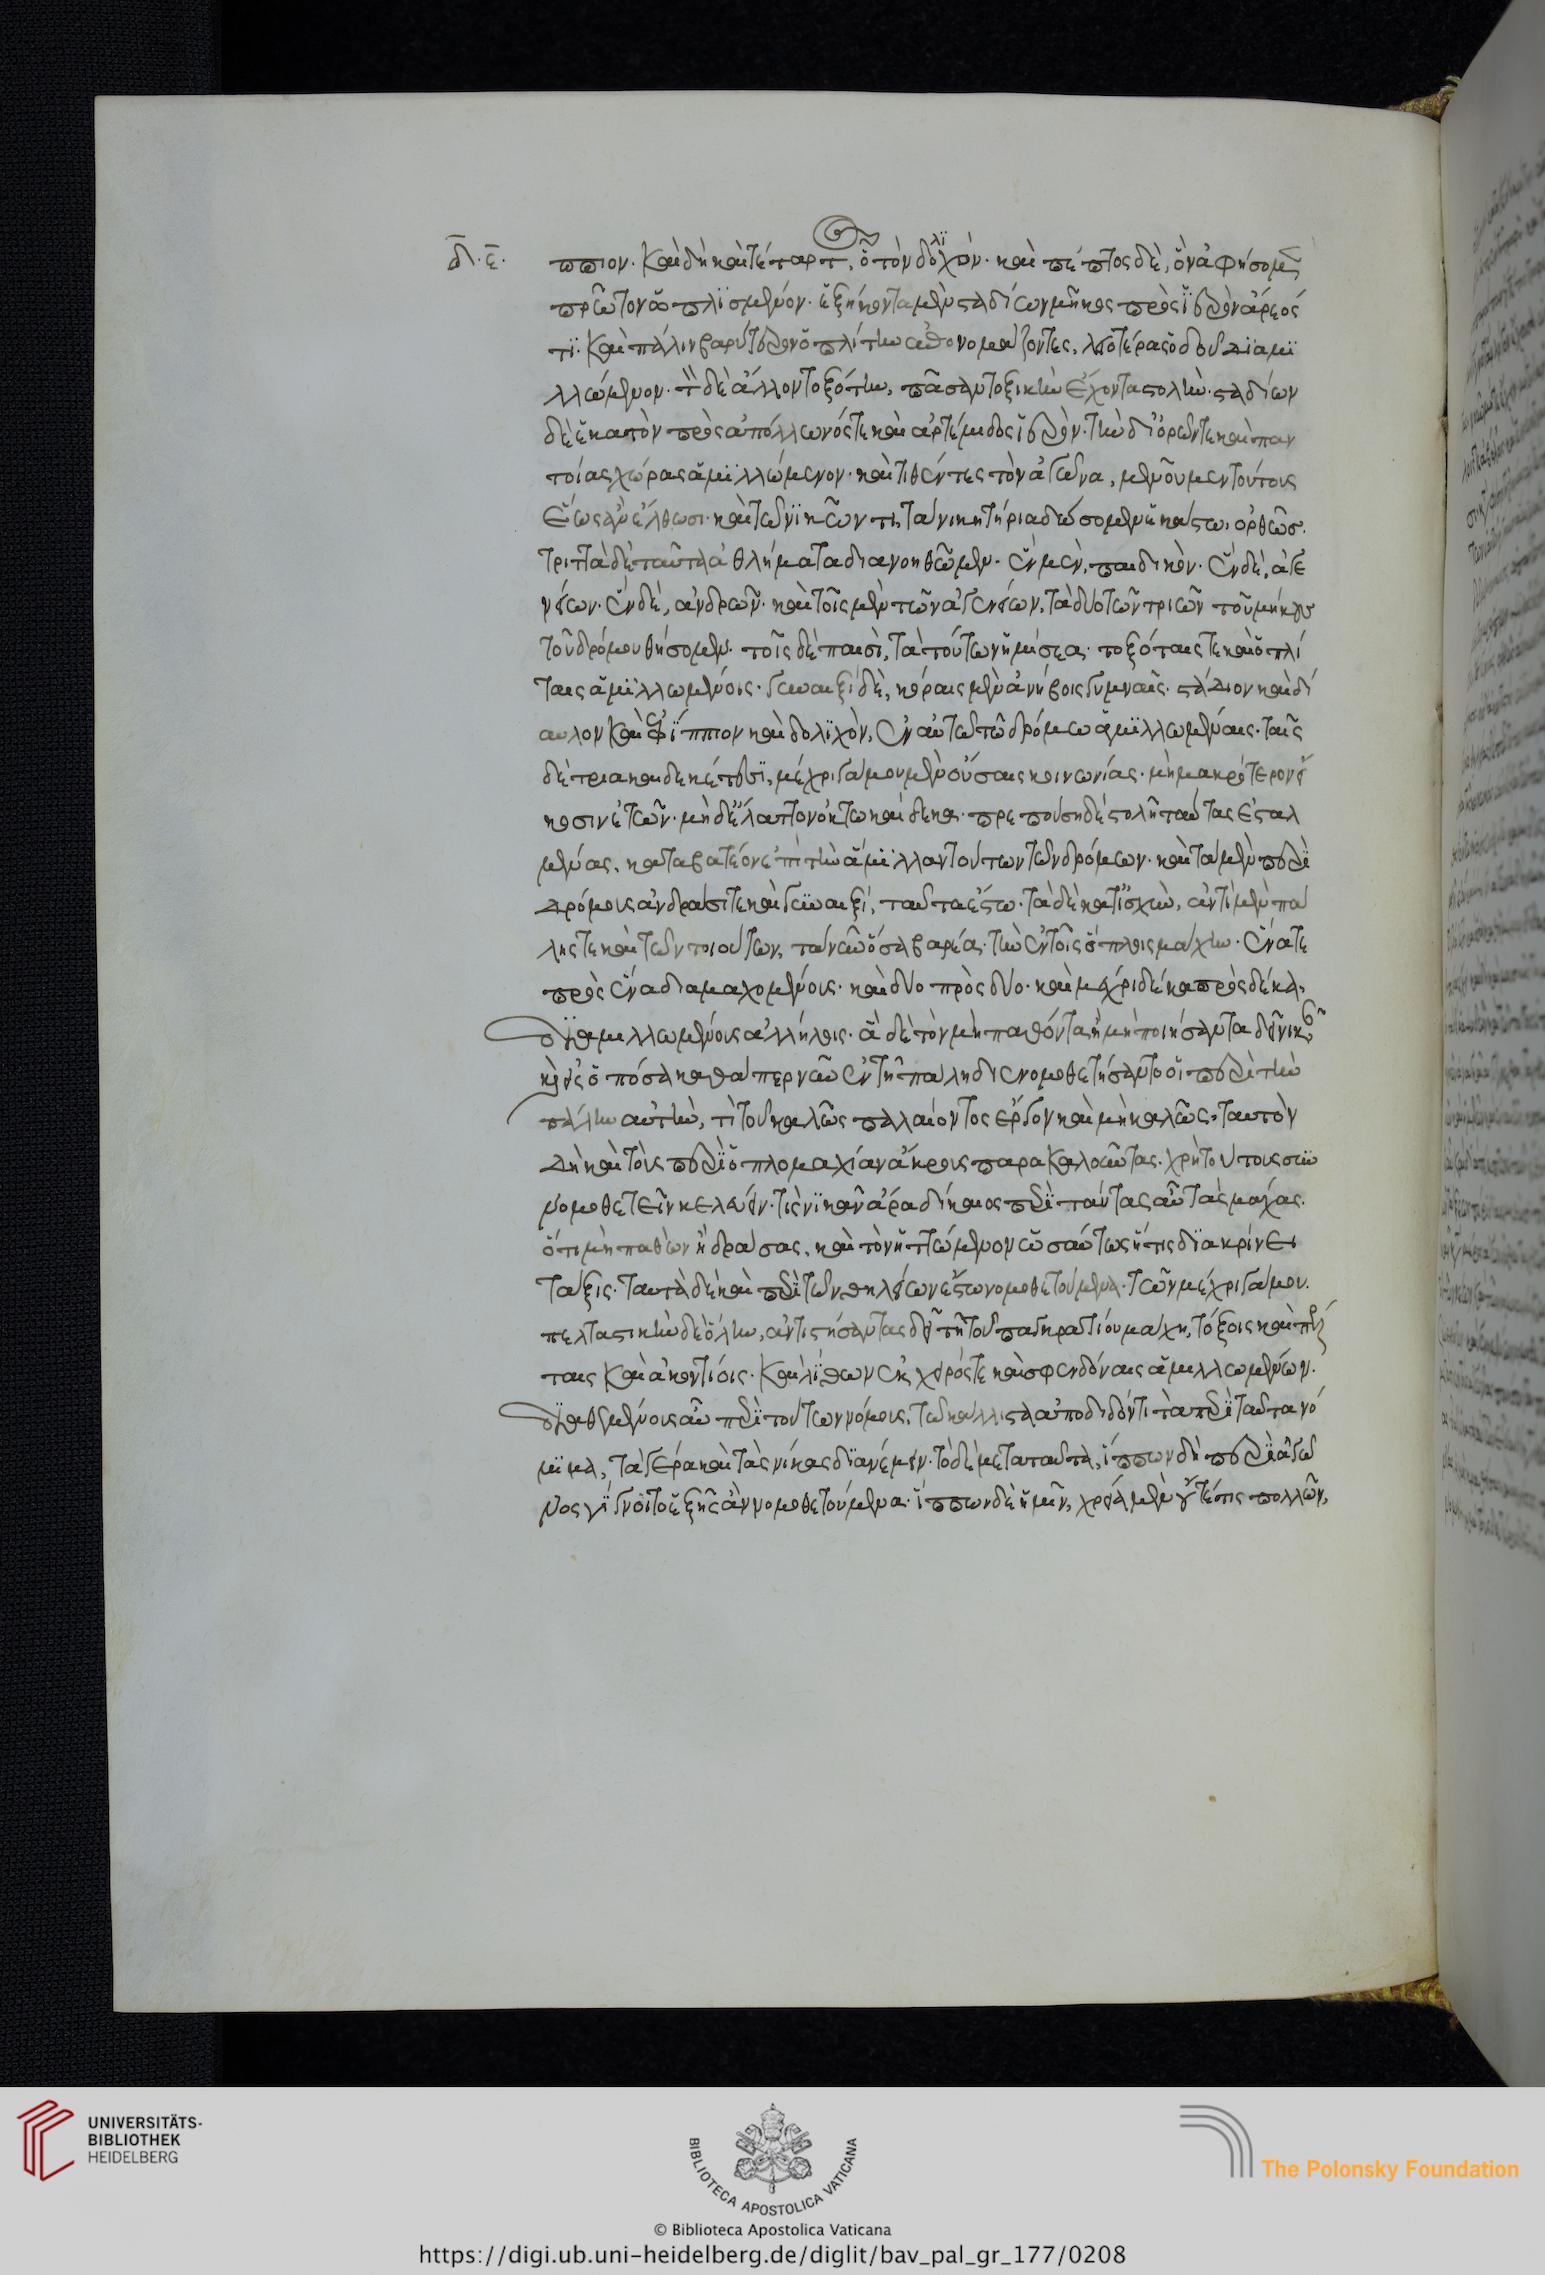 δλ. ε.
ππιον· καὶ δὴ καὶ τέταρτον, ὁ τὸν δόλιχον· καὶ πέμπτος δὲ, ὃν ἀφήσομεν
πρῶτον ὡπλισμένον· ἑξήκοντα μὲν σταδίων μῆκος πρὸς ἱερὸν ἄρεός
τι· καὶ πάλιν βαρύτερον ὁπλίτην ἐπονομάζοντες, λειοτέρας ὁδοῦ διαμι
λλώμενον· τὸν δὲ ἄλλον τοξότην, πᾶσαν τοξικὴν ἔχοντα στολὴν· σταδίων
δὲ ἑκατὸν πρὸς ἀπόλλωνός τε καὶ ἀρτέμιδος ἱερὸν· τὴν δι' ὀρῶν τε καὶ παν
τοίας χώρας ἁμιλλώμενον· καὶ τιθέντες τὸν ἀγῶνα, μενοῦμεν τούτους
ἕως ἂν ἔλθωσι· καὶ τῷ νικῶντι, τὰ νικητήρια δώσομεν ἑκάστων· ὀρθῶσ.
τριττὰ δὲ ταῦτα ἀθλήματα διανοηθῶμεν· ἓν μὲν, παιδικὸν· ἓν δὲ, ἀγε
νείων· ἓν δὲ, ἀνδρῶν· καὶ τοῖς μὲν τῶν ἀγενείων, τὰ δύο τῶν τριῶν τοῦ μήκους
τοῦ δρόμου θήσομεν· τοῖς δὲ παισὶ, τὰ τούτων ἡμίσεα· τοξόταις τε καὶ ὁπλί
ταις ἁμιλλωμένοις· γυναιξὶ δὲ, κόραις μὲν ἀνήβοις γυμναῖς· στάδιον καὶ δί
αυλον καὶ ἐφίππιον καὶ δολιχὸν, ἐν αὐτῷ τῷ δρόμῳ ἁμιλλωμέναις· ταῖς
δὲ τριακαιδεκέτεσι, μέχρι γάμου μενούσαις κοινωνίας· μὴ μακρότερον εἴ
κοσιν ἐτῶν· μὴ δ' ἔλαττον ὀκτωκαίδεκα· πρεπούσῃ δὲ στολῇ ταύτας ἐσταλ
μένας, καταβατέον ἐπὶ τὴν ἅμιλλαν τούτων τῶν δρόμων· καὶ τὰ μὲν περὶ
δρόμους ἀνδράσι τε καὶ γυναιξὶ, ταῦτα ἔστω· τὰ δὲ κατ' ἰσχὺν, ἀντὶ μὲν πά
λης τε καὶ τῶν τοιούτων, τὰ νῦν ὅσα βαρέα· τὴν ἐν τοῖς ὅπλοις μάχην· ἕνα τε
πρὸς ἕνα διαμαχομένους· καὶ δύο πρὸς δύο· καὶ μέχρι δέκα πρὸς δέκα,
διαμιλλωμένους ἀλλήλοις· ἃ δὲ τὸν μὴ παθόντα ἢ μὴ ποιήσαντα δεῖ νικᾶν
καὶ εἰς ὁπόσα καθάπερ νῦν ἐν τῇ πάλῃ διενομοθετήσαντο οἱ περὶ τὴν
πάλην αὐτὴν, τί τοῦ καλῶς παλαίοντος ἔργον καὶ μὴ καλῶς, ταυτὸν
δὴ καὶ τοὺς περὶ ὁπλομαχίαν ἄκρους παρακαλοῦντας· χρὴ τούτους συν
νομοθετεῖν κελεύειν· τίς νικᾶν ἄρα δίκαιος περὶ πάντας αὖ τὰς μάχας.
ὅτι μὴ παθὼν ἢ δράσας, καὶ τὸν ἡττώμενον ὡσαύτως ἥτις διακρίνει
τάξις. ταυτὰ δὲ καὶ περὶ τῶν θηλείων ἔστω νομοθετούμενα· τῶν μέχρι γάμου.
πελταστικὴν δὲ ὅλην, ἀντιστήσαντας δεῖ τῇ τοῦ παγκρατίου μάχῃ, τόξοις καὶ πέλ
ταις καὶ ἀκοντίοις· καὶ λίθων ἐκ χειρός τε καὶ σφενδόναις ἁμιλλωμένων.
διαθεμένους αὖ περὶ τούτων νόμους, τῷ κάλλιστα ἀποδιδόντι τὰ περὶ ταῦτα νό
μιμα, τὰ γέρα καὶ τὰς νίκας διανέμειν· τὸ δὲ μετὰ ταῦτα, ἵππων δὴ περὶ ἀγῶ
νος γίγνοιτο ἑξῆς ἂν νομοθετούμενα· ἵππων δὲ ἡμῖν, χρεία μὲν οὔτέ τις πολλῶν,
UNIVERSITÄTS-
BIBLIOTHEK
HEIDELBERG
BIBLIOTECA APOSTOLICA VATICANA
The Polonsky Foundation
© Biblioteca Apostolica Vaticana
https://digi.ub.uni-heidelberg.de/diglit/bav_pal_gr_177/0208